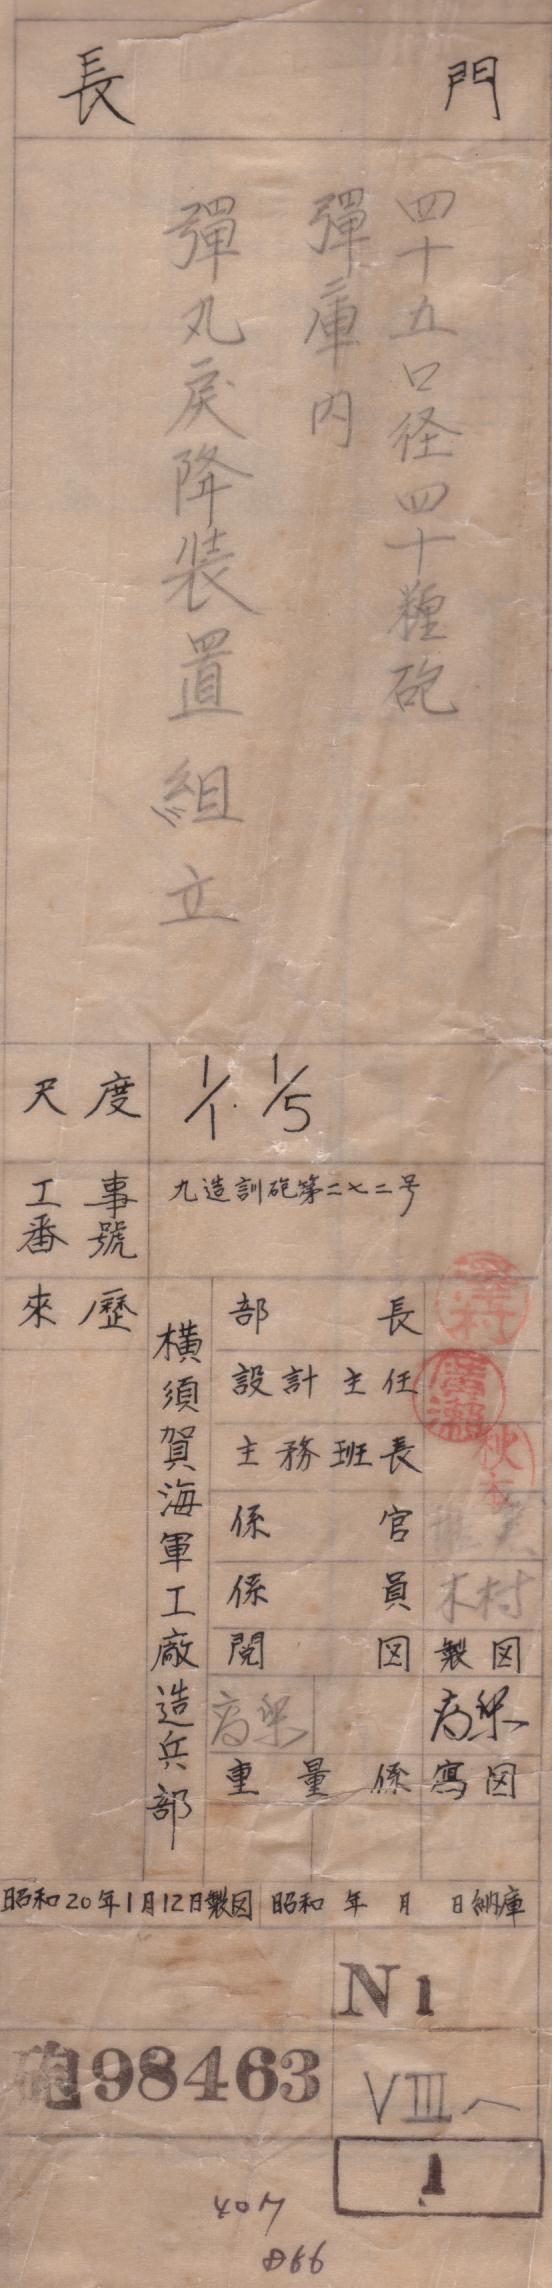 長門
四十五口径四十糎砲
彈庫内
彈丸戻降装置組立
尺度 1/1. 1/5
工事番號 九造訓砲第二七二号
來歷
横須賀海軍工廠造兵部
部長 澤村
設計主任 廣瀨
主務班長 秋本
係官
係員 木村
閲図 製図
重量係 寫図
昭和20年1月12日製図 昭和 年 月 日納庫
N 1
砲98463 VIII へ
1